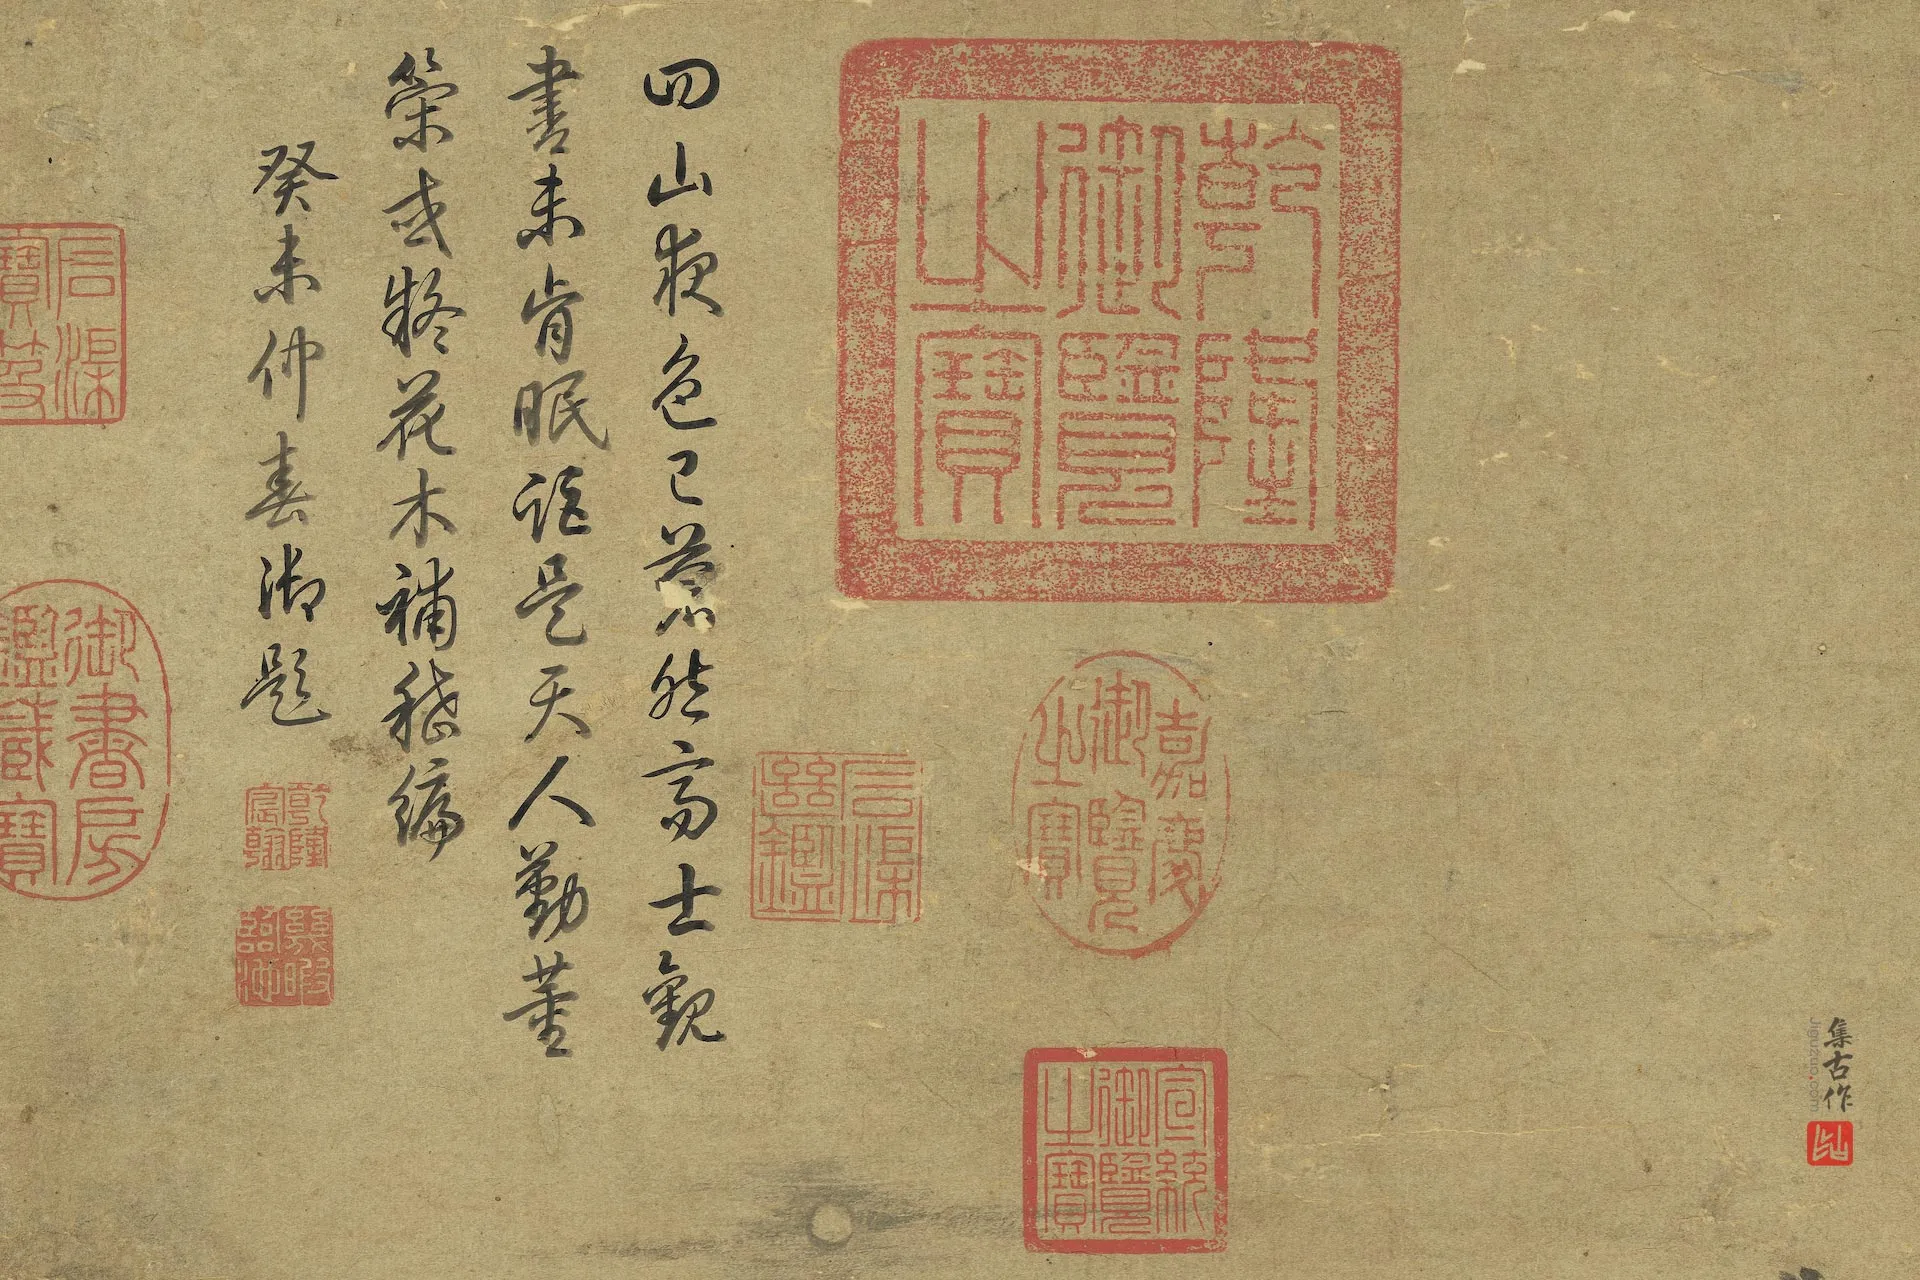 乾隆
御覽
之寶
嘉慶
御覽
之寶
宣統
御覽
之寶
石渠
繼鑑
四山夜色已蒼然高士觀
書未肯眠詎是天人勤董
策或將花木補嵇編
癸未仲春御題
乾隆
宸翰
幾暇
臨池
石渠
寶笈
御書房
鑑藏寶
集古作
Jiguzuo.com